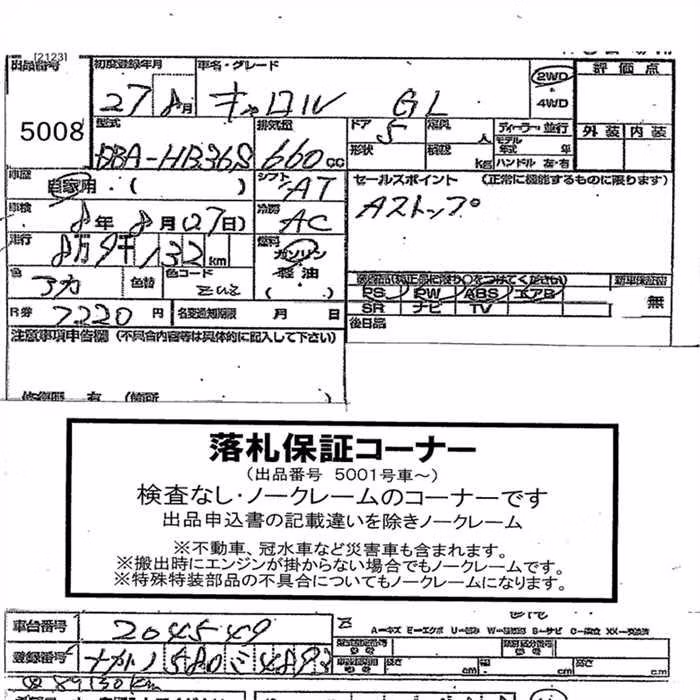 [2123]
出品番号 初度登録年月 車名・グレード 2WD 評価点
27 8月 キャロル GL ・
4WD
5008 型式 排気量 ドア 5 定員 人 ディーラー・並行 外装 内装
DBA-HB36S 660cc 形状 積載 kg モデル年式 年
ハンドル 左・右
車歴 自家用・( ) シフト AT セールスポイント (正常に機能するものに限ります)
車検 8年 8月(27日) 冷房 AC Aストップ
走行 8万9千132km 燃料 ガソリン
色 アカ 色替 色コード 軽油
( . )
新車保証書
PS PW ABS エアB 無
SR ナビ TV
R券 7220円 名変通知期限 月 日 後日品
注意事項申告欄 (不具合内容等は具体的に記入して下さい)
修復歴 有 (箇所
落札保証コーナー
(出品番号 5001号車~)
検査なし・ノークレームのコーナーです
出品申込書の記載違いを除きノークレーム
※不動車、冠水車など災害車も含まれます。
※搬出時にエンジンが掛からない場合でもノークレームです。
※特殊特装部品の不具合についてもノークレームになります。
車台番号 204549
A=キズ E=エクボ U=凹み W=補修跡 S=サビ C=腐食 XX=交換済
登録番号 ナガノ 580 ミ 4893 長さ cm 幅 cm 高さ cm
89150km